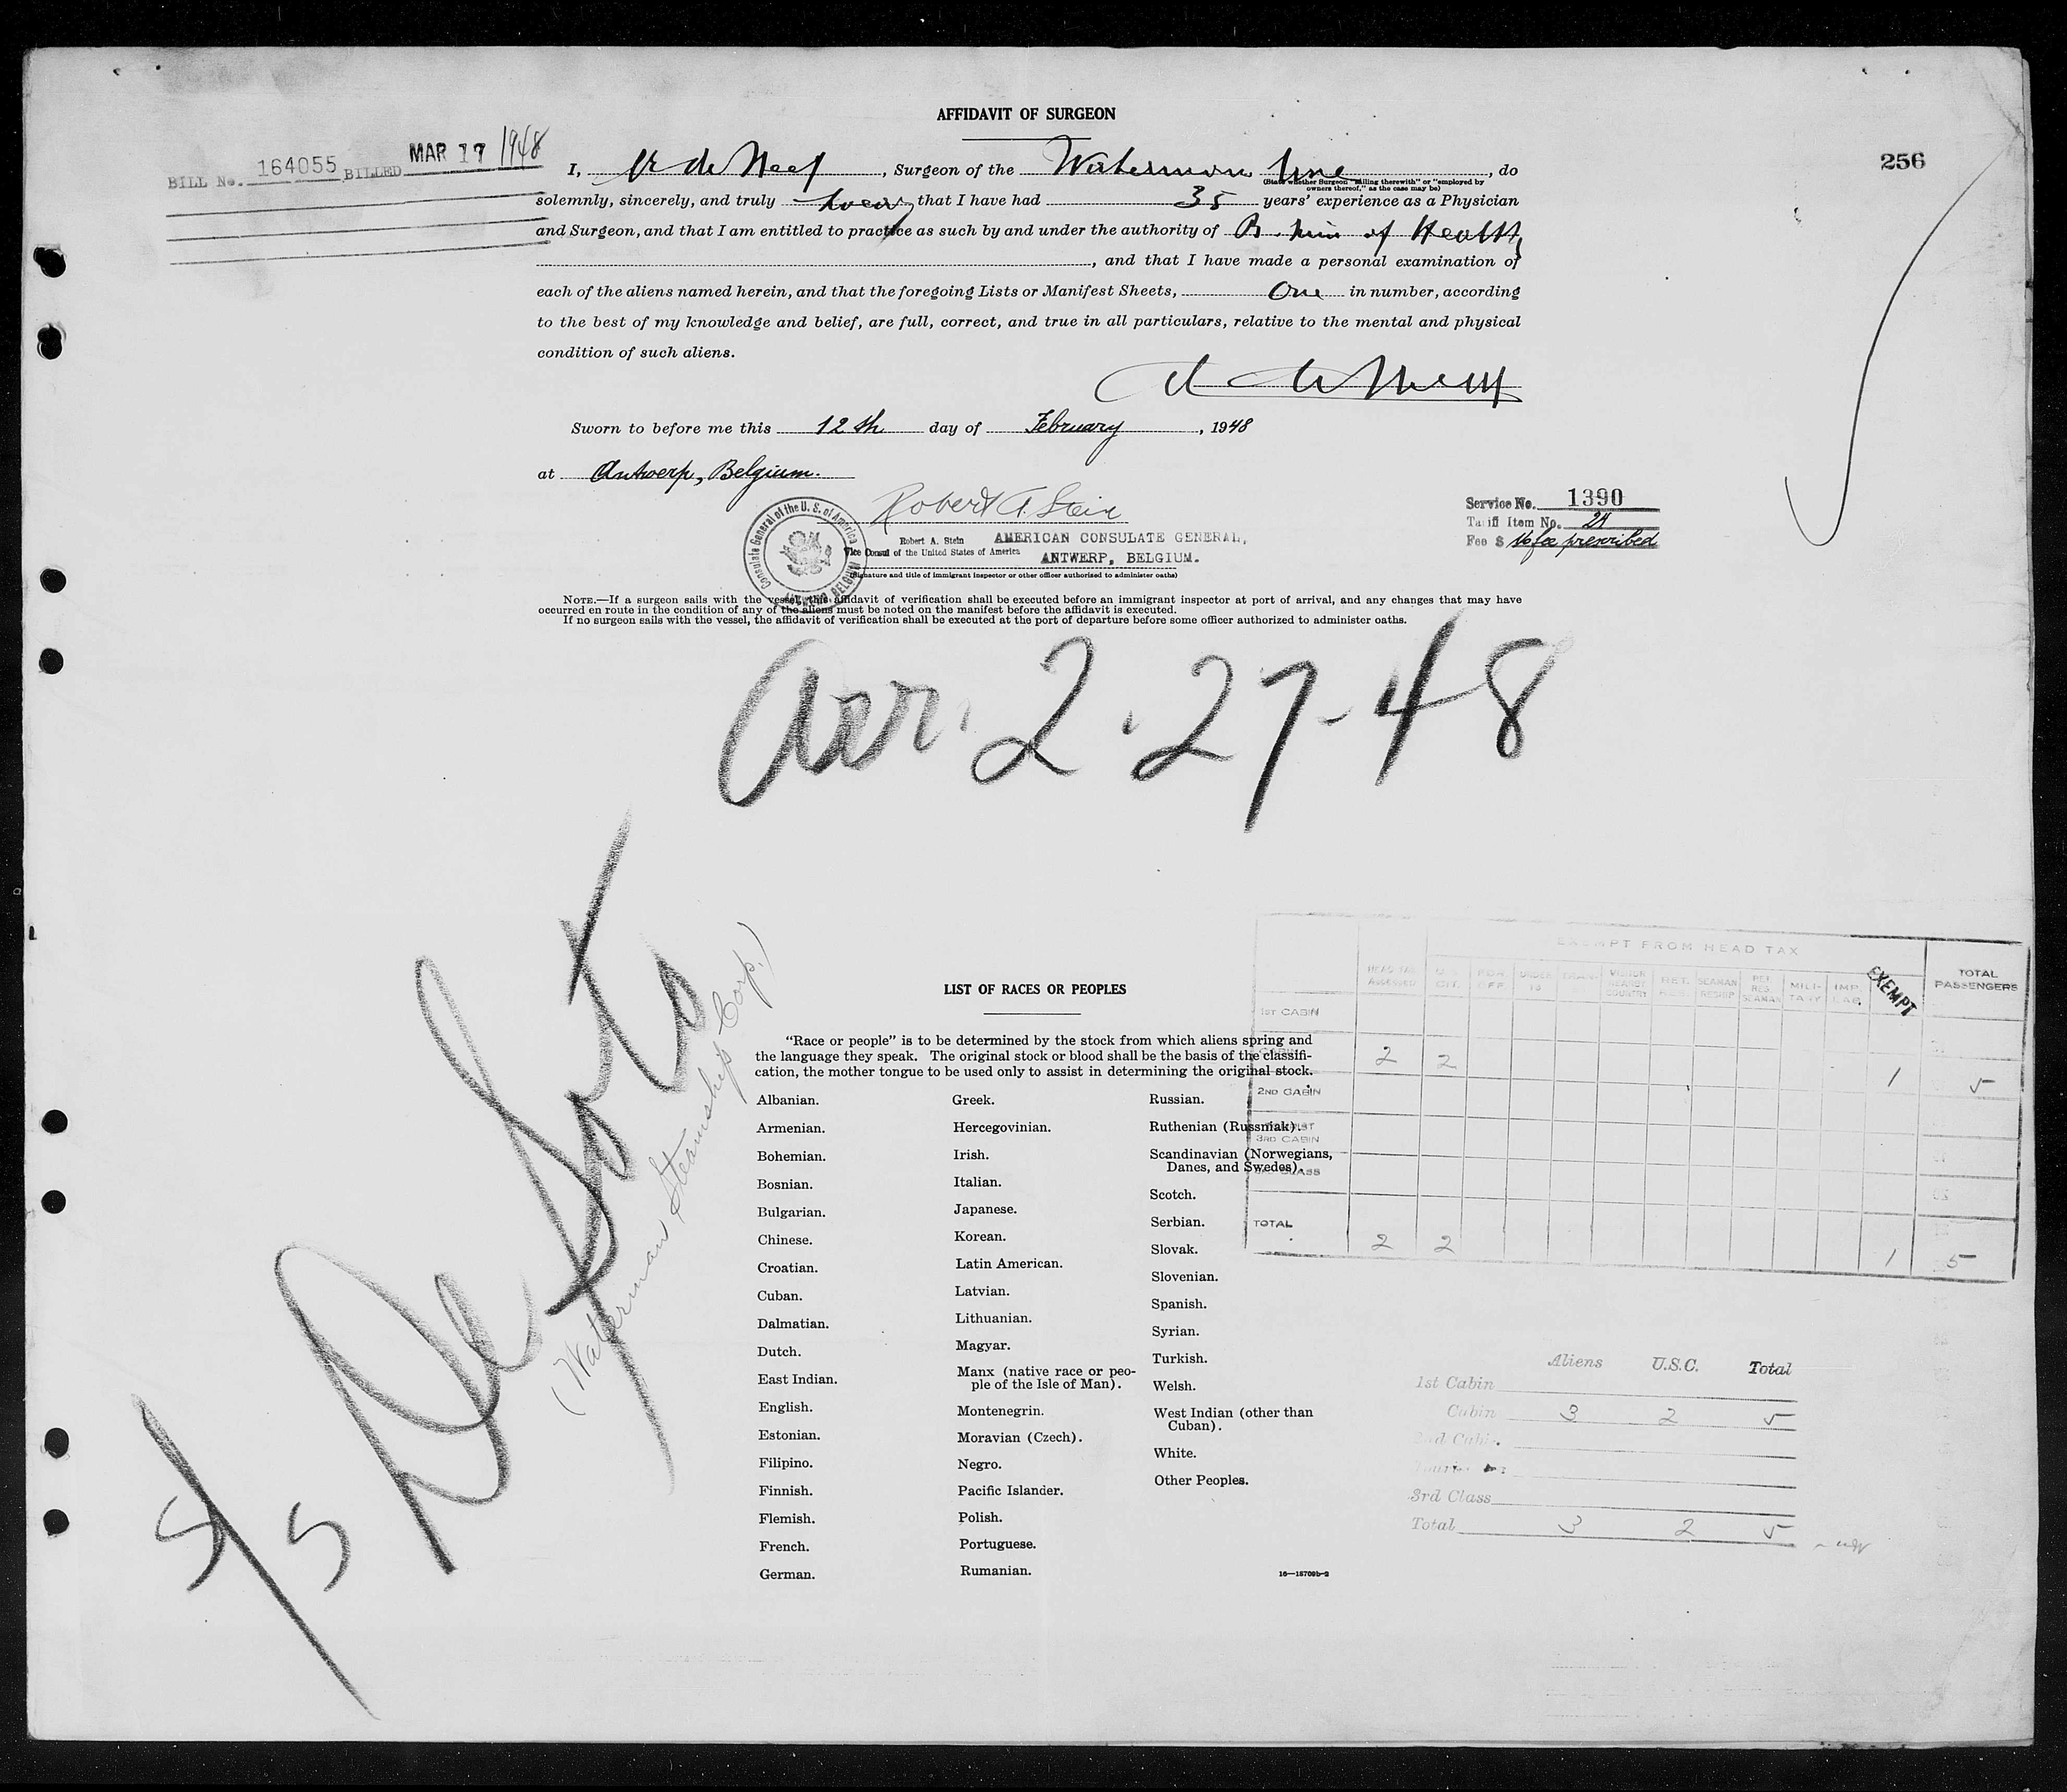 AFFIDAVIT OF SURGEON
256
BILL No. 164055 BILLED MAR 17 1948
I, de Neef, Surgeon of the Waterman Line, do
(State whether Surgeon "sailing therewith" or "employed by
owners thereof," as the case may be)
solemnly, sincerely, and truly swear that I have had 35 years' experience as a Physician
and Surgeon, and that I am entitled to practice as such by and under the authority of B. Min of Health
, and that I have made a personal examination of
each of the aliens named herein, and that the foregoing Lists or Manifest Sheets, One in number, according
to the best of my knowledge and belief, are full, correct, and true in all particulars, relative to the mental and physical
condition of such aliens.
de Neef
Sworn to before me this 12th day of February, 1948
at Antwerp, Belgium.
Robert A. Stein
Robert A. Stein
Vice Consul of the United States of America
AMERICAN CONSULATE GENERAL,
ANTWERP, BELGIUM.
(Signature and title of immigrant inspector or other officer authorized to administer oaths)
Consulate General of the U. S. of America
ANTWERP, BELGIUM
Service No. 1390
Tariff Item No. 24
Fee $ No fee prescribed
NOTE.—If a surgeon sails with the vessel, this affidavit of verification shall be executed before an immigrant inspector at port of arrival, and any changes that may have
occurred en route in the condition of any of the aliens must be noted on the manifest before the affidavit is executed.
If no surgeon sails with the vessel, the affidavit of verification shall be executed at the port of departure before some officer authorized to administer oaths.
Arr. 2-27-48
S/S De Soto
(Waterman Steamship Corp.)
LIST OF RACES OR PEOPLES
"Race or people" is to be determined by the stock from which aliens spring and
the language they speak. The original stock or blood shall be the basis of the classifi-
cation, the mother tongue to be used only to assist in determining the original stock.
Albanian.
Armenian.
Bohemian.
Bosnian.
Bulgarian.
Chinese.
Croatian.
Cuban.
Dalmatian.
Dutch.
East Indian.
English.
Estonian.
Filipino.
Finnish.
Flemish.
French.
German.
Greek.
Hercegovinian.
Irish.
Italian.
Japanese.
Korean.
Latin American.
Latvian.
Lithuanian.
Magyar.
Manx (native race or peo-
ple of the Isle of Man).
Montenegrin.
Moravian (Czech).
Negro.
Pacific Islander.
Polish.
Portuguese.
Rumanian.
Russian.
Ruthenian (Russniak).
Scandinavian (Norwegians,
Danes, and Swedes).
Scotch.
Serbian.
Slovak.
Slovenian.
Spanish.
Syrian.
Turkish.
Welsh.
West Indian (other than
Cuban).
White.
Other Peoples.
16—18709b-2
EXEMPT FROM HEAD TAX
HEAD TAX ASSESSED U.S. CIT. FOR. OFF. UNDER 16 TRAN. VISITOR NEARBY COUNTRY RET. RES. SEAMAN RESHIP RET. RES. SEAMAN MILI-TARY IMP. LAB. EXEMPT TOTAL PASSENGERS
1ST CABIN
CABIN 2 2 1 5
2ND CABIN
TOURIST
3RD CABIN
3RD CLASS
TOTAL 2 2 1 5
Aliens U.S.C. Total
1st Cabin
Cabin 3 2 5
2nd Cabin
Tourist
3rd Class
Total 3 2 5